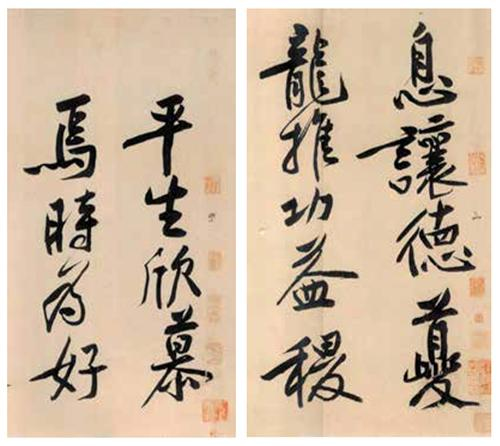 息讓德夔
龍推功益稷
平生欣慕
焉時為好